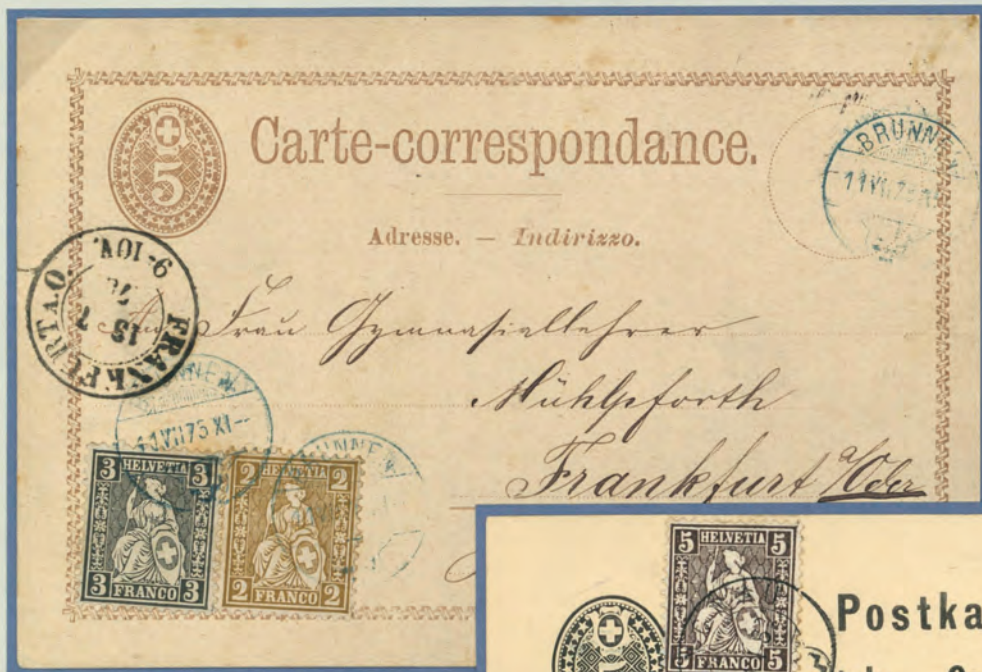 5
Carte-correspondance.
BRUNNEN
11 VII 75 XI
Adresse. — Indirizzo.
FRANKFURT A/O.
13 7
9-10V.
Frau Gymnasiallehrer
Mühlpforth
Frankfurt a/Oder
BRUNNEN
11 VII 75 XI—
BRUNNEN
3 HELVETIA 3
3 FRANCO 3
2 HELVETIA 2
2 FRANCO 2
5 HELVETIA 5
5 FRANCO 5
Postka